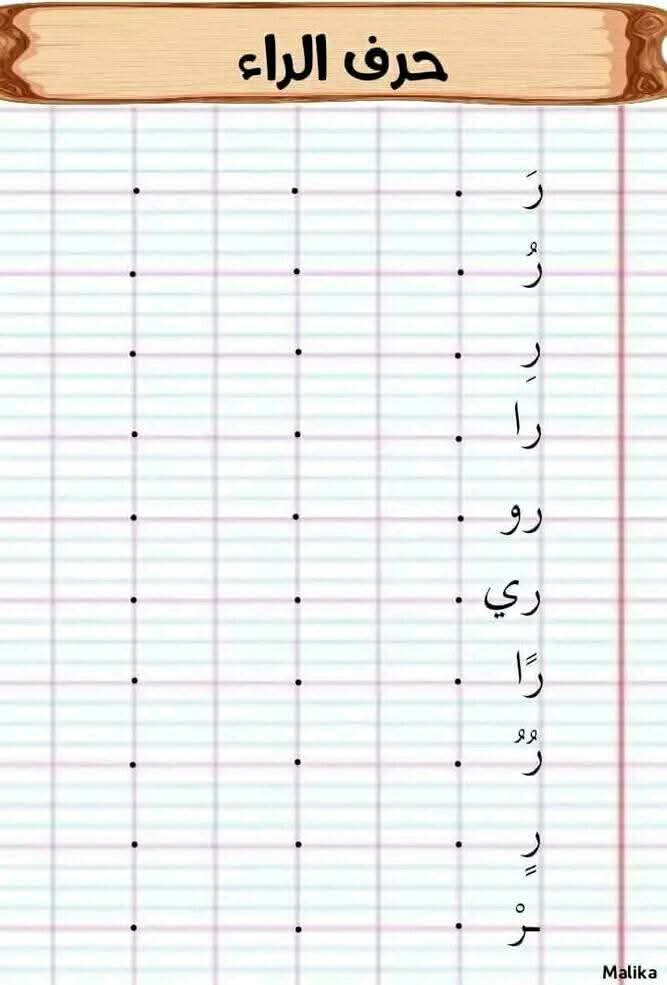 حرف الراء
رَ
رُ
رِ
را
رو
ري
رًا
رٌ
رٍ
ـرْ
Malika